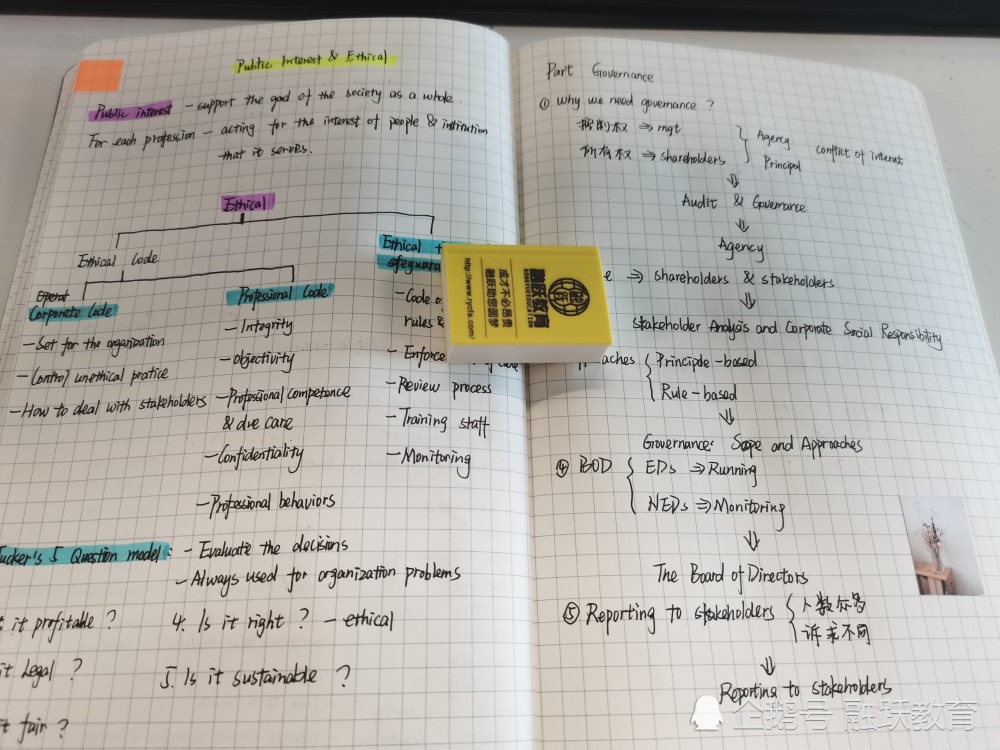 Public Interest & Ethical
Public interest - support the good of the society as a whole.
For each profession - acting for the interest of people & institution
that it serves.
Ethical
Ethical Code
Corporate Code
- Set for the organization
- Control unethical pratice
- How to deal with stakeholders
Professional Code
- Integrity
- objectivity
- Professional competence
& due care
- Confidentiality
- Professional behaviors
Ethical
safeguar
- Code o
rules &
- Enforce
- Review process
- Training staff
- Monitoring
ucker's 5 Question model:
- Evaluate the decisions
- Always used for organization problems
it profitable ?
4. Is it right ? - ethical
it Legal ?
5. Is it sustainable ?
it fair ?
融跃教育
RONGYUEJIAOYU
成才不必昂贵
融跃助您圆梦
http://www.rycfa.com/
Part Governance
① Why we need governance ?
控制权 ⇒ mgt
所有权 ⇒ shareholders
Agency
Principal
conflict of interest
⇓
Audit & Governance
⇓
Agency
e ⇒ shareholders & stakeholders
⇓
stakeholder Analysis and Corporate Social Responsibility
oaches { Principle-based
Rule-based
⇓
Governance: Scope and Approaches
④ BOD { EDs ⇒ Running
NEDs ⇒ Monitoring
⇓
The Board of Directors
⑤ Reporting to stakeholders { 人数众多
诉求不同
⇓
Reporting to stakeholders
企鹅号 融跃教育